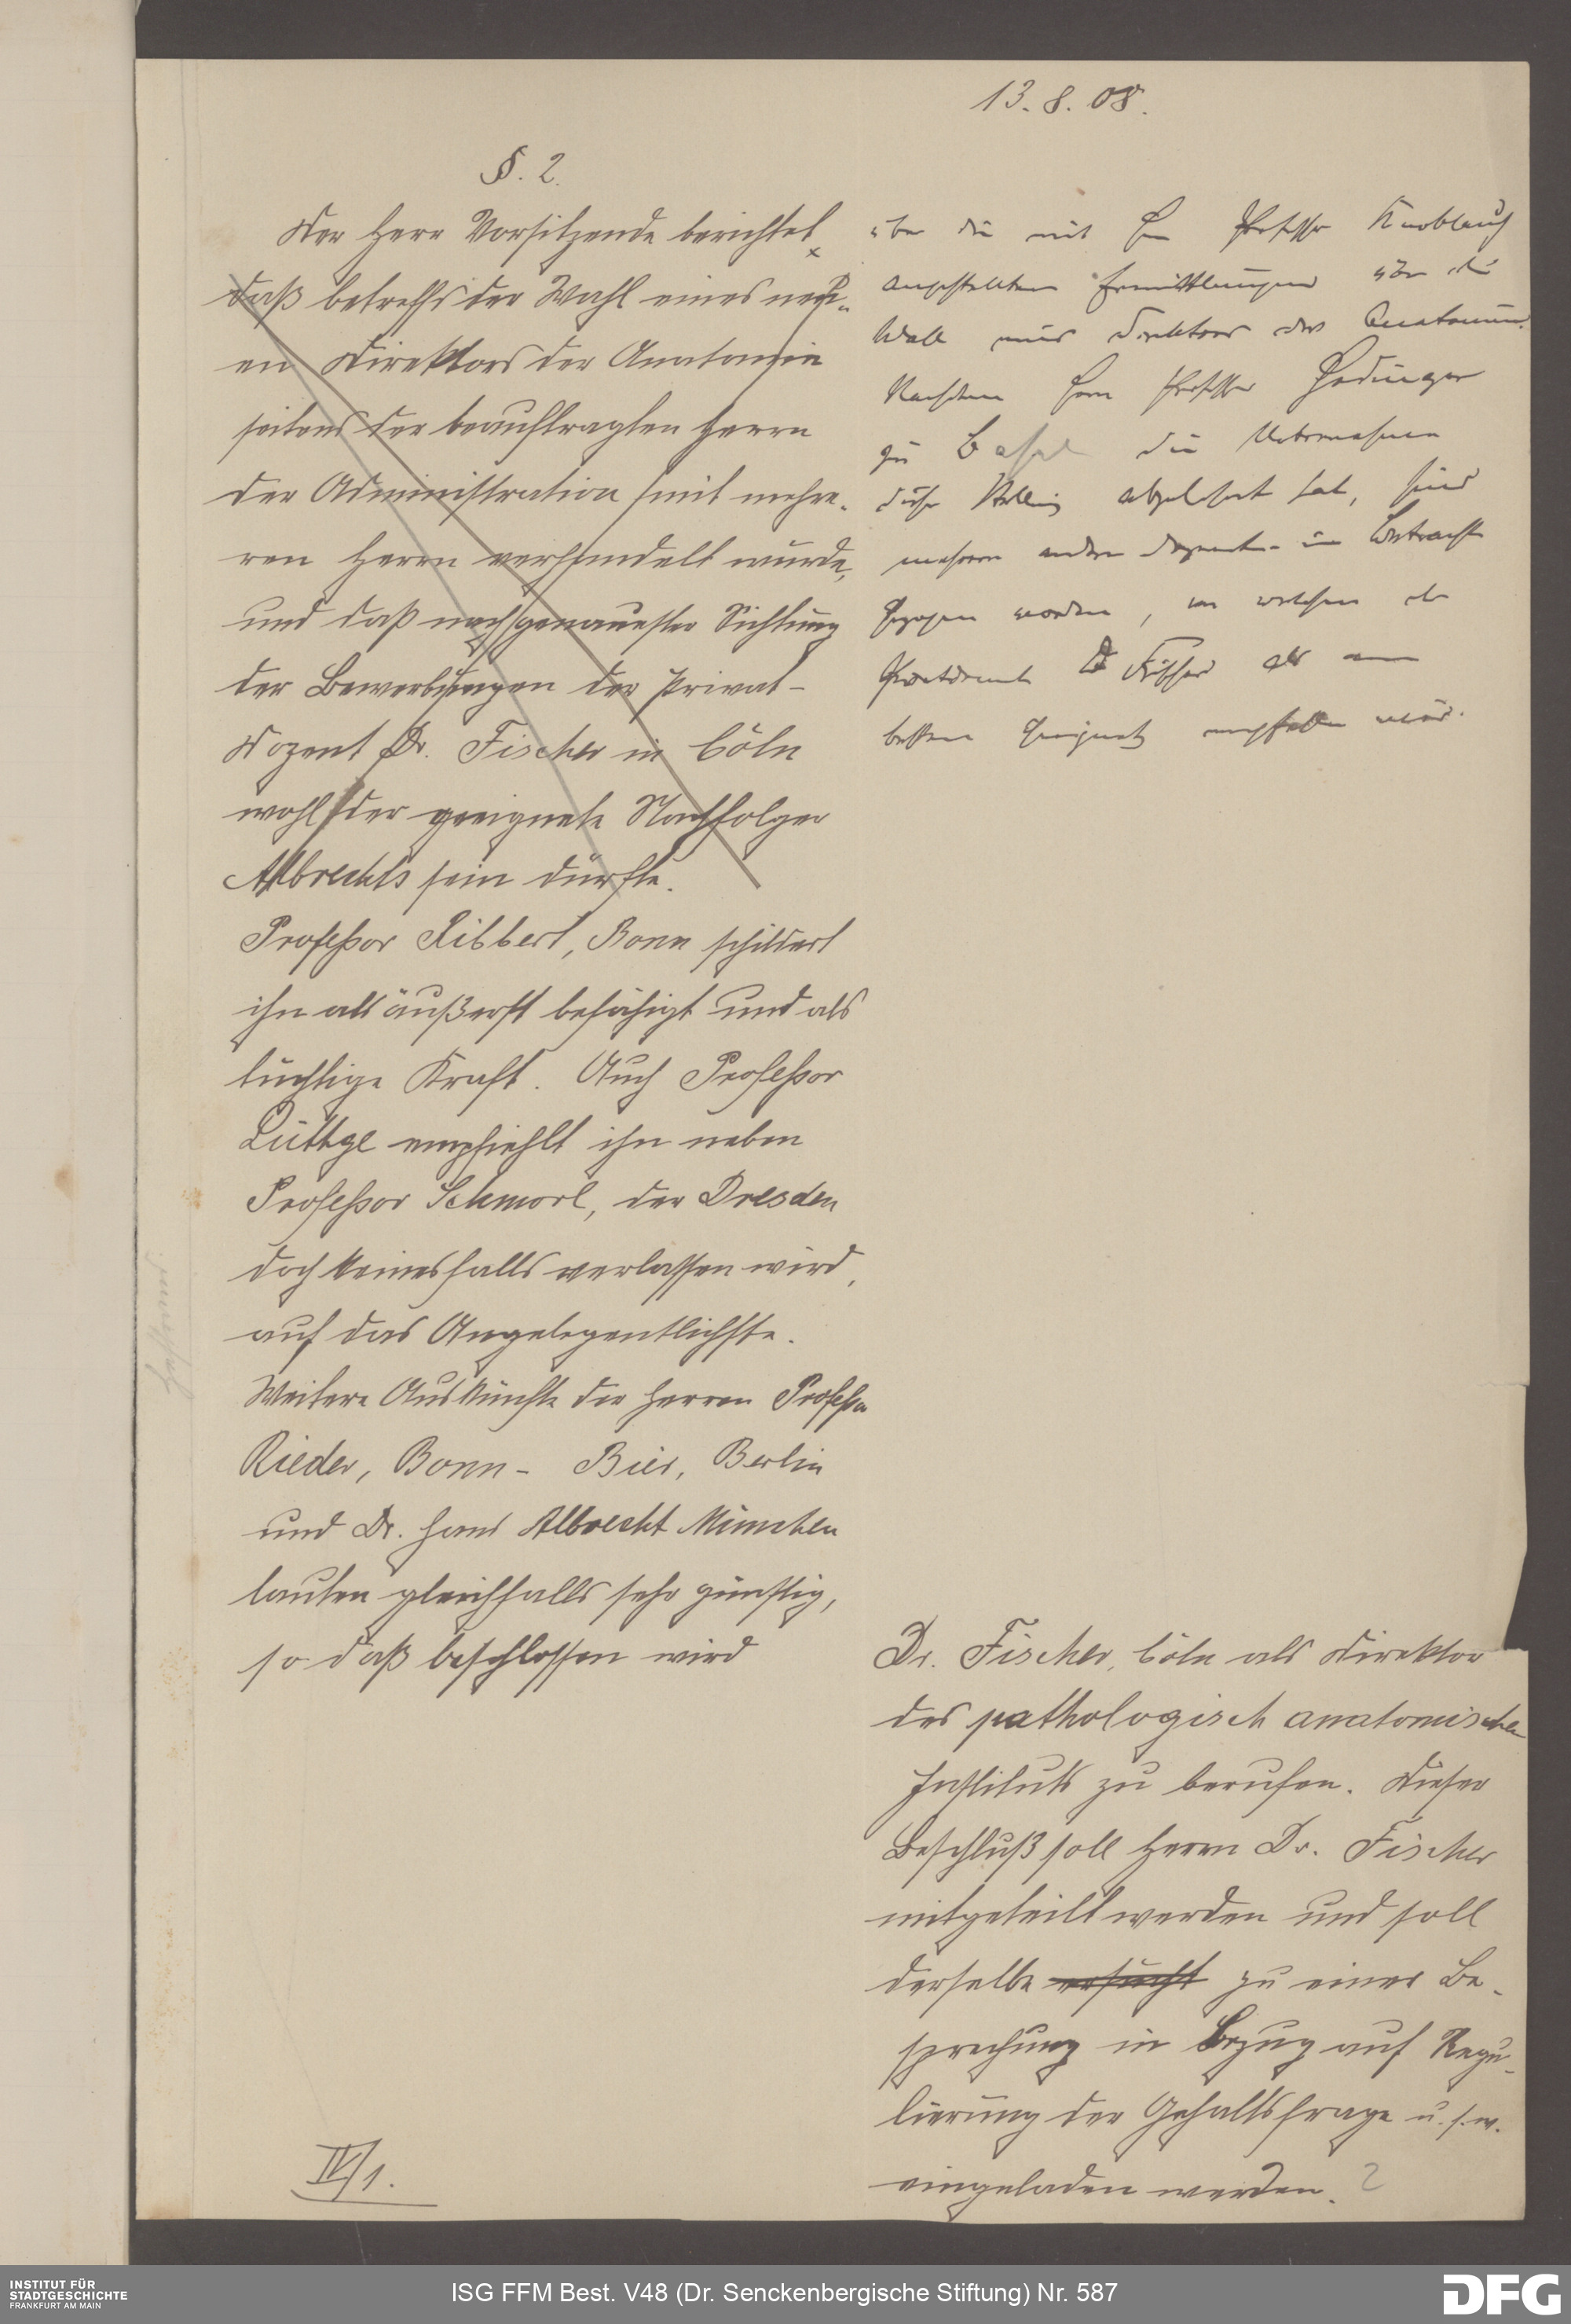 13. 8. 08.
§. 2.
Der Herr Vorsitzende berichtet
daß betreffs der Wahl eines neu-
en Direktors der Anatomie
seitens der beauftragten Herrn
der Administration mit mehre-
ren Herrn verhandelt wurde,
und daß nach genauester Sichtung
der Bewerbungen der Privat-
Dozent Dr. Fischer in Cöln
wohl der geeignete Nachfolger
Albrechts sein dürfte.
Professor Ribbert, Bonn schildert
ihn als äußerst befähigt und als
tüchtige Kraft. Auch Professor
Lüthje empfiehlt ihn neben
Professor Schmorl, der Dresden
doch keinesfalls verlassen wird,
auf das Angelegentlichste.
Weitere Auskünfte der Herren Professor
Rieder, Bonn - Bier, Berlin
und Dr. Hans Albrecht München
lauten gleichfalls sehr günstig,
so daß beschlossen wird
IV/1.
über die mit H Professor Knoblauch
angestellten Ermittlungen über die
Wahl eines Direktors der Anatomie.
Nachdem Herr Professor Hedinger
zu Basel die Uebernahme
dieser Stellung abgelehnt hat, sind
mehrere andere Dozenten in Betracht
gezogen worden, von welchen der
Privatdozent Dr Fischer als am
besten geeignet empfohlen wird.
Dr. Fischer, Cöln als Direktor
des pathologisch anatomischen
Instituts zu berufen. Dieser
Beschluß soll Herrn Dr. Fischer
mitgeteilt werden und soll
derselbe ersucht zu einer Be-
sprechung in Bezug auf Regu-
lierung der Gehaltsfrage u. s. w.
eingeladen werden.
INSTITUT FÜR
STADTGESCHICHTE
FRANKFURT AM MAIN
ISG FFM Best. V48 (Dr. Senckenbergische Stiftung) Nr. 587
DFG